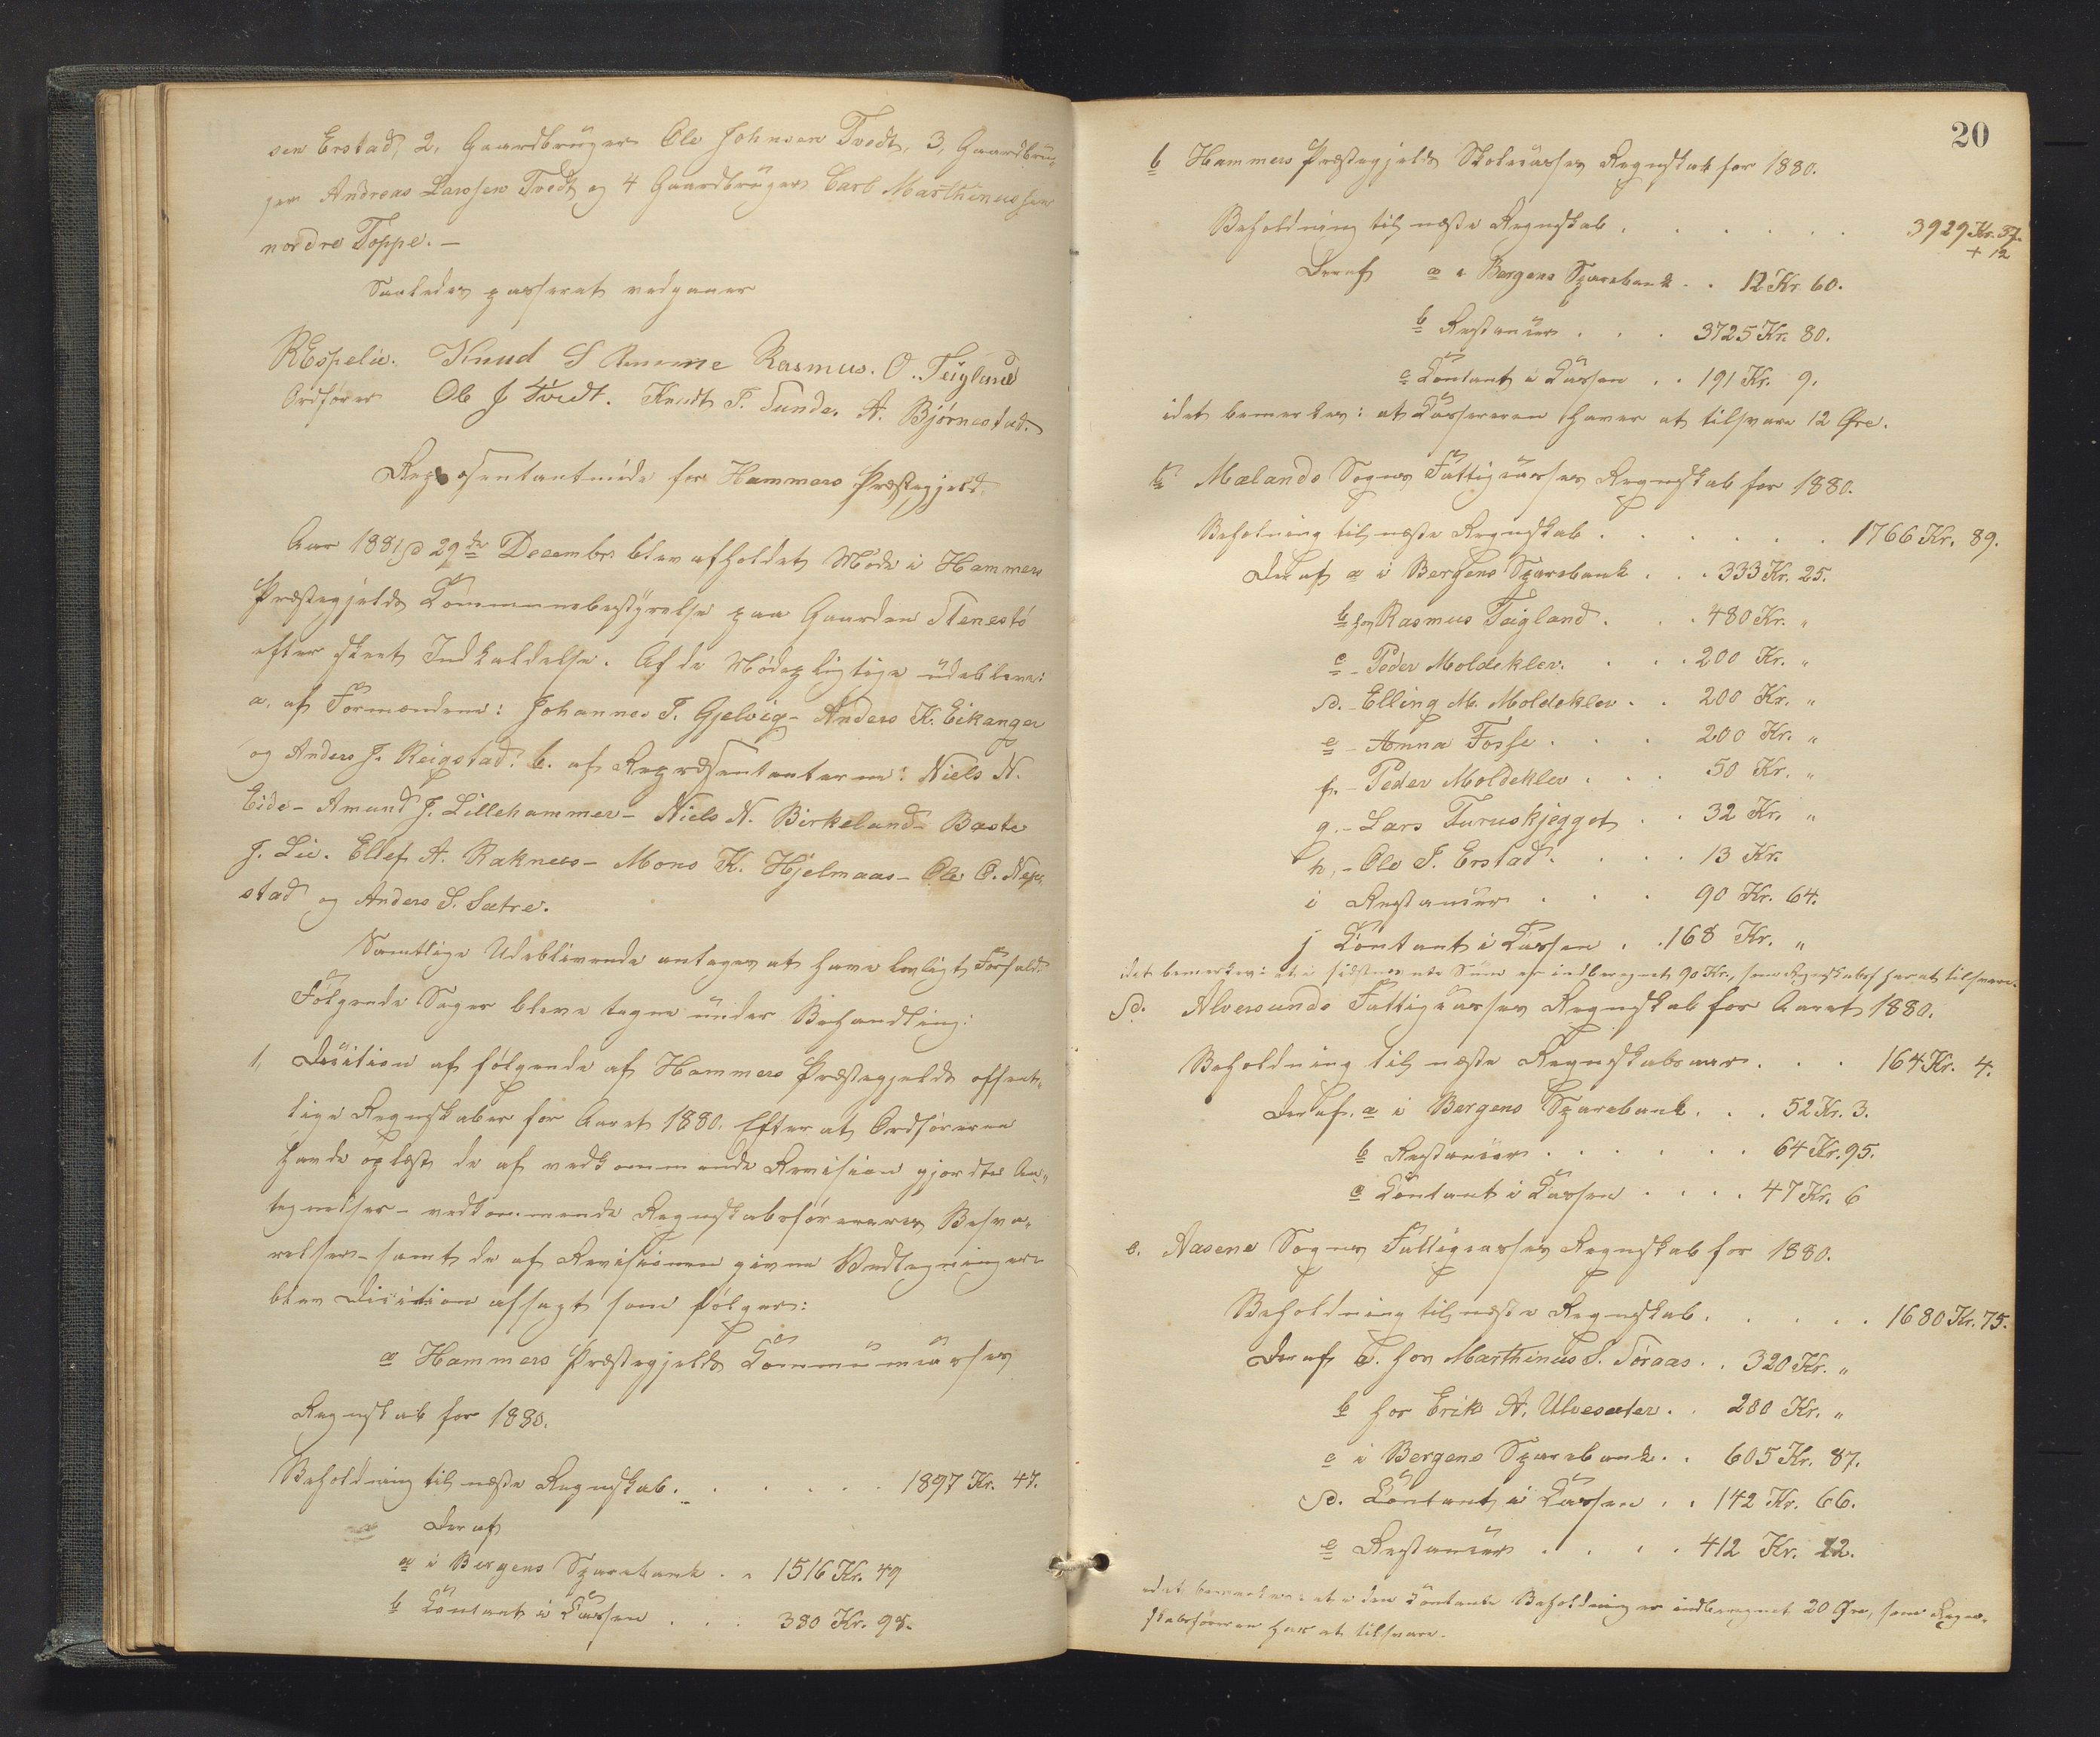 sen Erstad, 2, Gaardbruger Ole Johnsen Tvedt, 3, Gaardbru-
ger Andreas Larssen Tvedt og 4 Gaardbruger Carl Marthinussen
nordre Toppe. —
Saaledes passeret vedgaaes
R Espelie. Knud S Rømme Rasmus. O. Teigland
Ordfører Ole J Tvedt. Knudt T. Tunde. A. Bjørnestad.
Repræsentantmøde for Hammers Præstegjeld.
Aar 1881 d 29de December blev afholdet Møde i Hammers
Præstegjelds Communebestyrelse paa Gaarden Stenestø
efter skeet Indkaldelse. Af de Mødepligtige udebleve:
a, af Formændene: Johannes T. Gjelvig - Anders K. Eikanger
og Anders J. Reigstad. b. af Repræsentanterne: Niels N.
Eide - Amund J. Lillehammer - Niels N. Birkeland - Baste
J. Lie. Ellef A. Raknes - Mons K. Hjelmaas - Ole O. Nep-
stad og Anders S. Sætre.
Samtlige Udeblivende antages at have lovligt Forfald.
Følgende Sager bleve tagne under Behandling:
1, Decition af følgende af Hammers Præstegjelds offent-
lige Regnskaber for Aaret 1880. Efter at Ordføreren
havde oplæst de af vedkommende Revision gjordte An-
tegnelser - vedkommende Regnskabsføreres Besva-
relser - samt de af Revisionen givne Vedtegninger
blev Decition afsagt som følger:
a Hammers Præstegjelds Communecasses
Regnskab for 1880.
Beholdning til næste Regnskab. . . . . . . 1897 Kr. 47.
Deraf
a i Bergens Sparebank . . 1516 Kr. 49
b Contant i Cassen . . . 380 Kr. 98.
20
b Hammers Præstegjelds Skolecasses Regnskab for 1880.
Beholdning til næste Regnskab . . . . . . 3929 Kr. 37.
+ 12
Deraf a i Bergens Sparebank . . 12 Kr. 60.
b Restancer . . . 3725 Kr. 80.
c Contant i Cassen . . 191 Kr. 9.
idet bemerkes: at Cassereren haver at tilsvare 12 Øre.
c Mælands Sogns Fattigcasses Regnskab for 1880.
Beholning til næste Regnskab . . . . . . 1766 Kr. 89.
Deraf a i Bergens Sparebank . . . 333 Kr. 25.
b hos Rasmus Teigland . . . 480 Kr. "
c - Peder Moldeklev. . . . 200 Kr. "
d. - Elling M. Moldeklev . . 200 Kr. "
e - Anna Fosse . . . 200 Kr. "
f. - Peder Moldeklev . . . 50 Kr. "
g. - Lars Furuskjegget . . 32 Kr. "
h, - Ole J. Erstad . . . . 13 Kr.
i Restancer . . . 90 Kr. 64.
j Contant i Cassen . . 168 Kr. "
idet bemerkes: at i sidstnevnte Sum er indberegnet 90 Kr., som Regnskabsf. har at tilsvare.
d. Alversunds Fattigcasses Regnskab for Aaret 1880.
Beholdning til næste Regnskabsaar . . . 164 Kr. 4.
Deraf. a i Bergens Sparebank. . . 52 Kr. 3.
b Restancer . . . . . . 64 Kr. 95.
c Contant i Cassen . . . . 47 Kr. 6
e. Aasene Sogns Fattigcasses Regnskab for 1880.
Beholdning til næste Regnskab . . . . . 1680 Kr. 75.
Deraf a. hos Marthinus S. Toraas. . 320 Kr. "
b hos Erik A. Ulvesæter. . 200 Kr. "
c i Bergens Sparebank. . 605 Kr. 87.
d. Contant i Cassen . . 142 Kr. 66.
e Restancer . . . . 412 Kr. 22.
idet bemerkes: at i den Contante Beholdning er indberegnet 20 Øre, som Regn-
skabsføreren har at tilsvare.